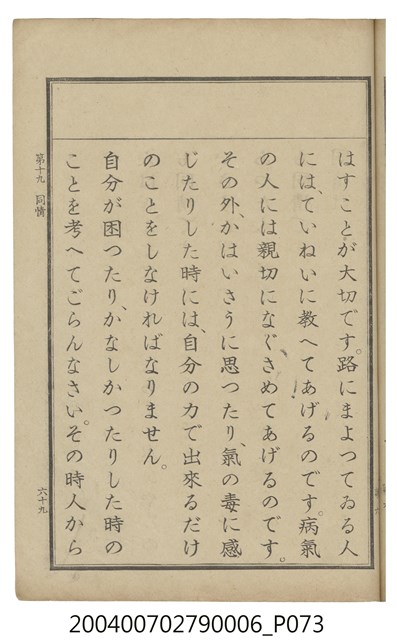 はすことが大切です。路にまよつてゐる人
には、ていねいに教へてあげるのです。病氣
の人には親切になぐさめてあげるのです。
その外、かはいさうに思つたり、氣の毒に感
じたりした時には、自分の力で出來るだけ
のことをしなければなりません。
自分が困つたり、かなしかつたりした時の
ことを考へてごらんなさい。その時人から
第十九 同情
六十九
200400702790006_P073